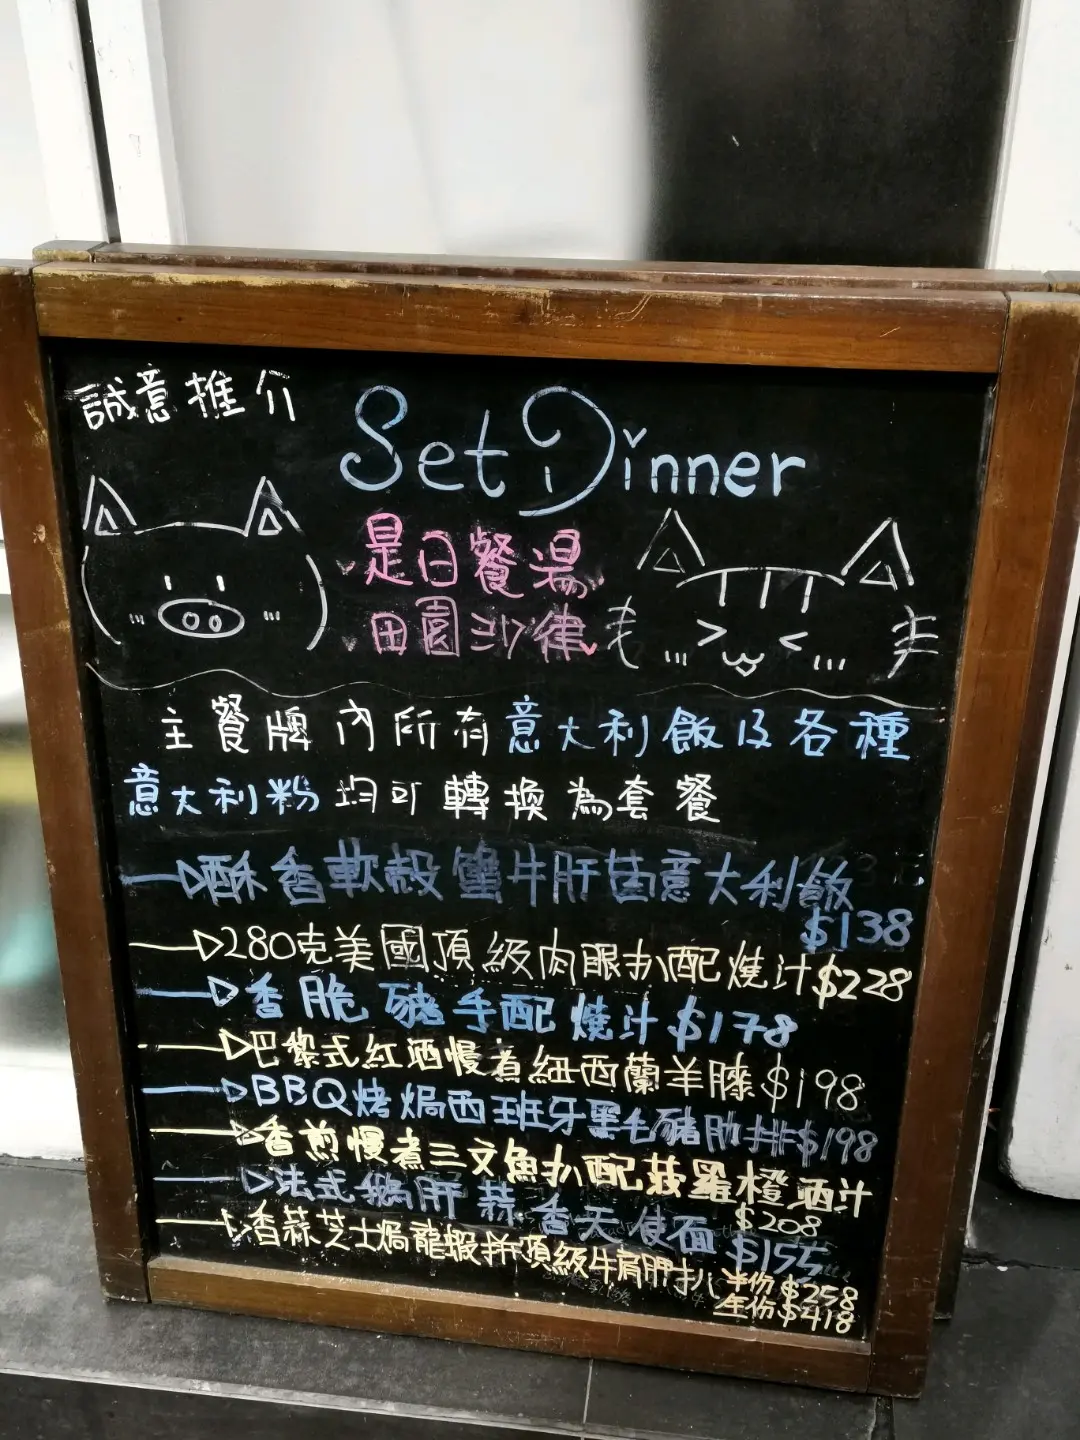 誠意推介
Set Dinner
是日餐湯
田園沙律
主餐牌內所有意大利飯及各種
意大利粉均可轉換為套餐
酥香軟殼蟹牛肝菌意大利飯
$138
280克美國頂級肉眼扒配燒汁$228
香脆豬手配燒汁$178
巴黎式紅酒慢煮紐西蘭羊膝$198
BBQ烤焗西班牙黑毛豬肋排$198
香煎慢煮三文魚扒配菠蘿橙酒汁
$208
法式鵝肝蒜香天使面$155
香蒜芝士焗龍蝦拼頂級牛肩胛扒半份$258
全份$418